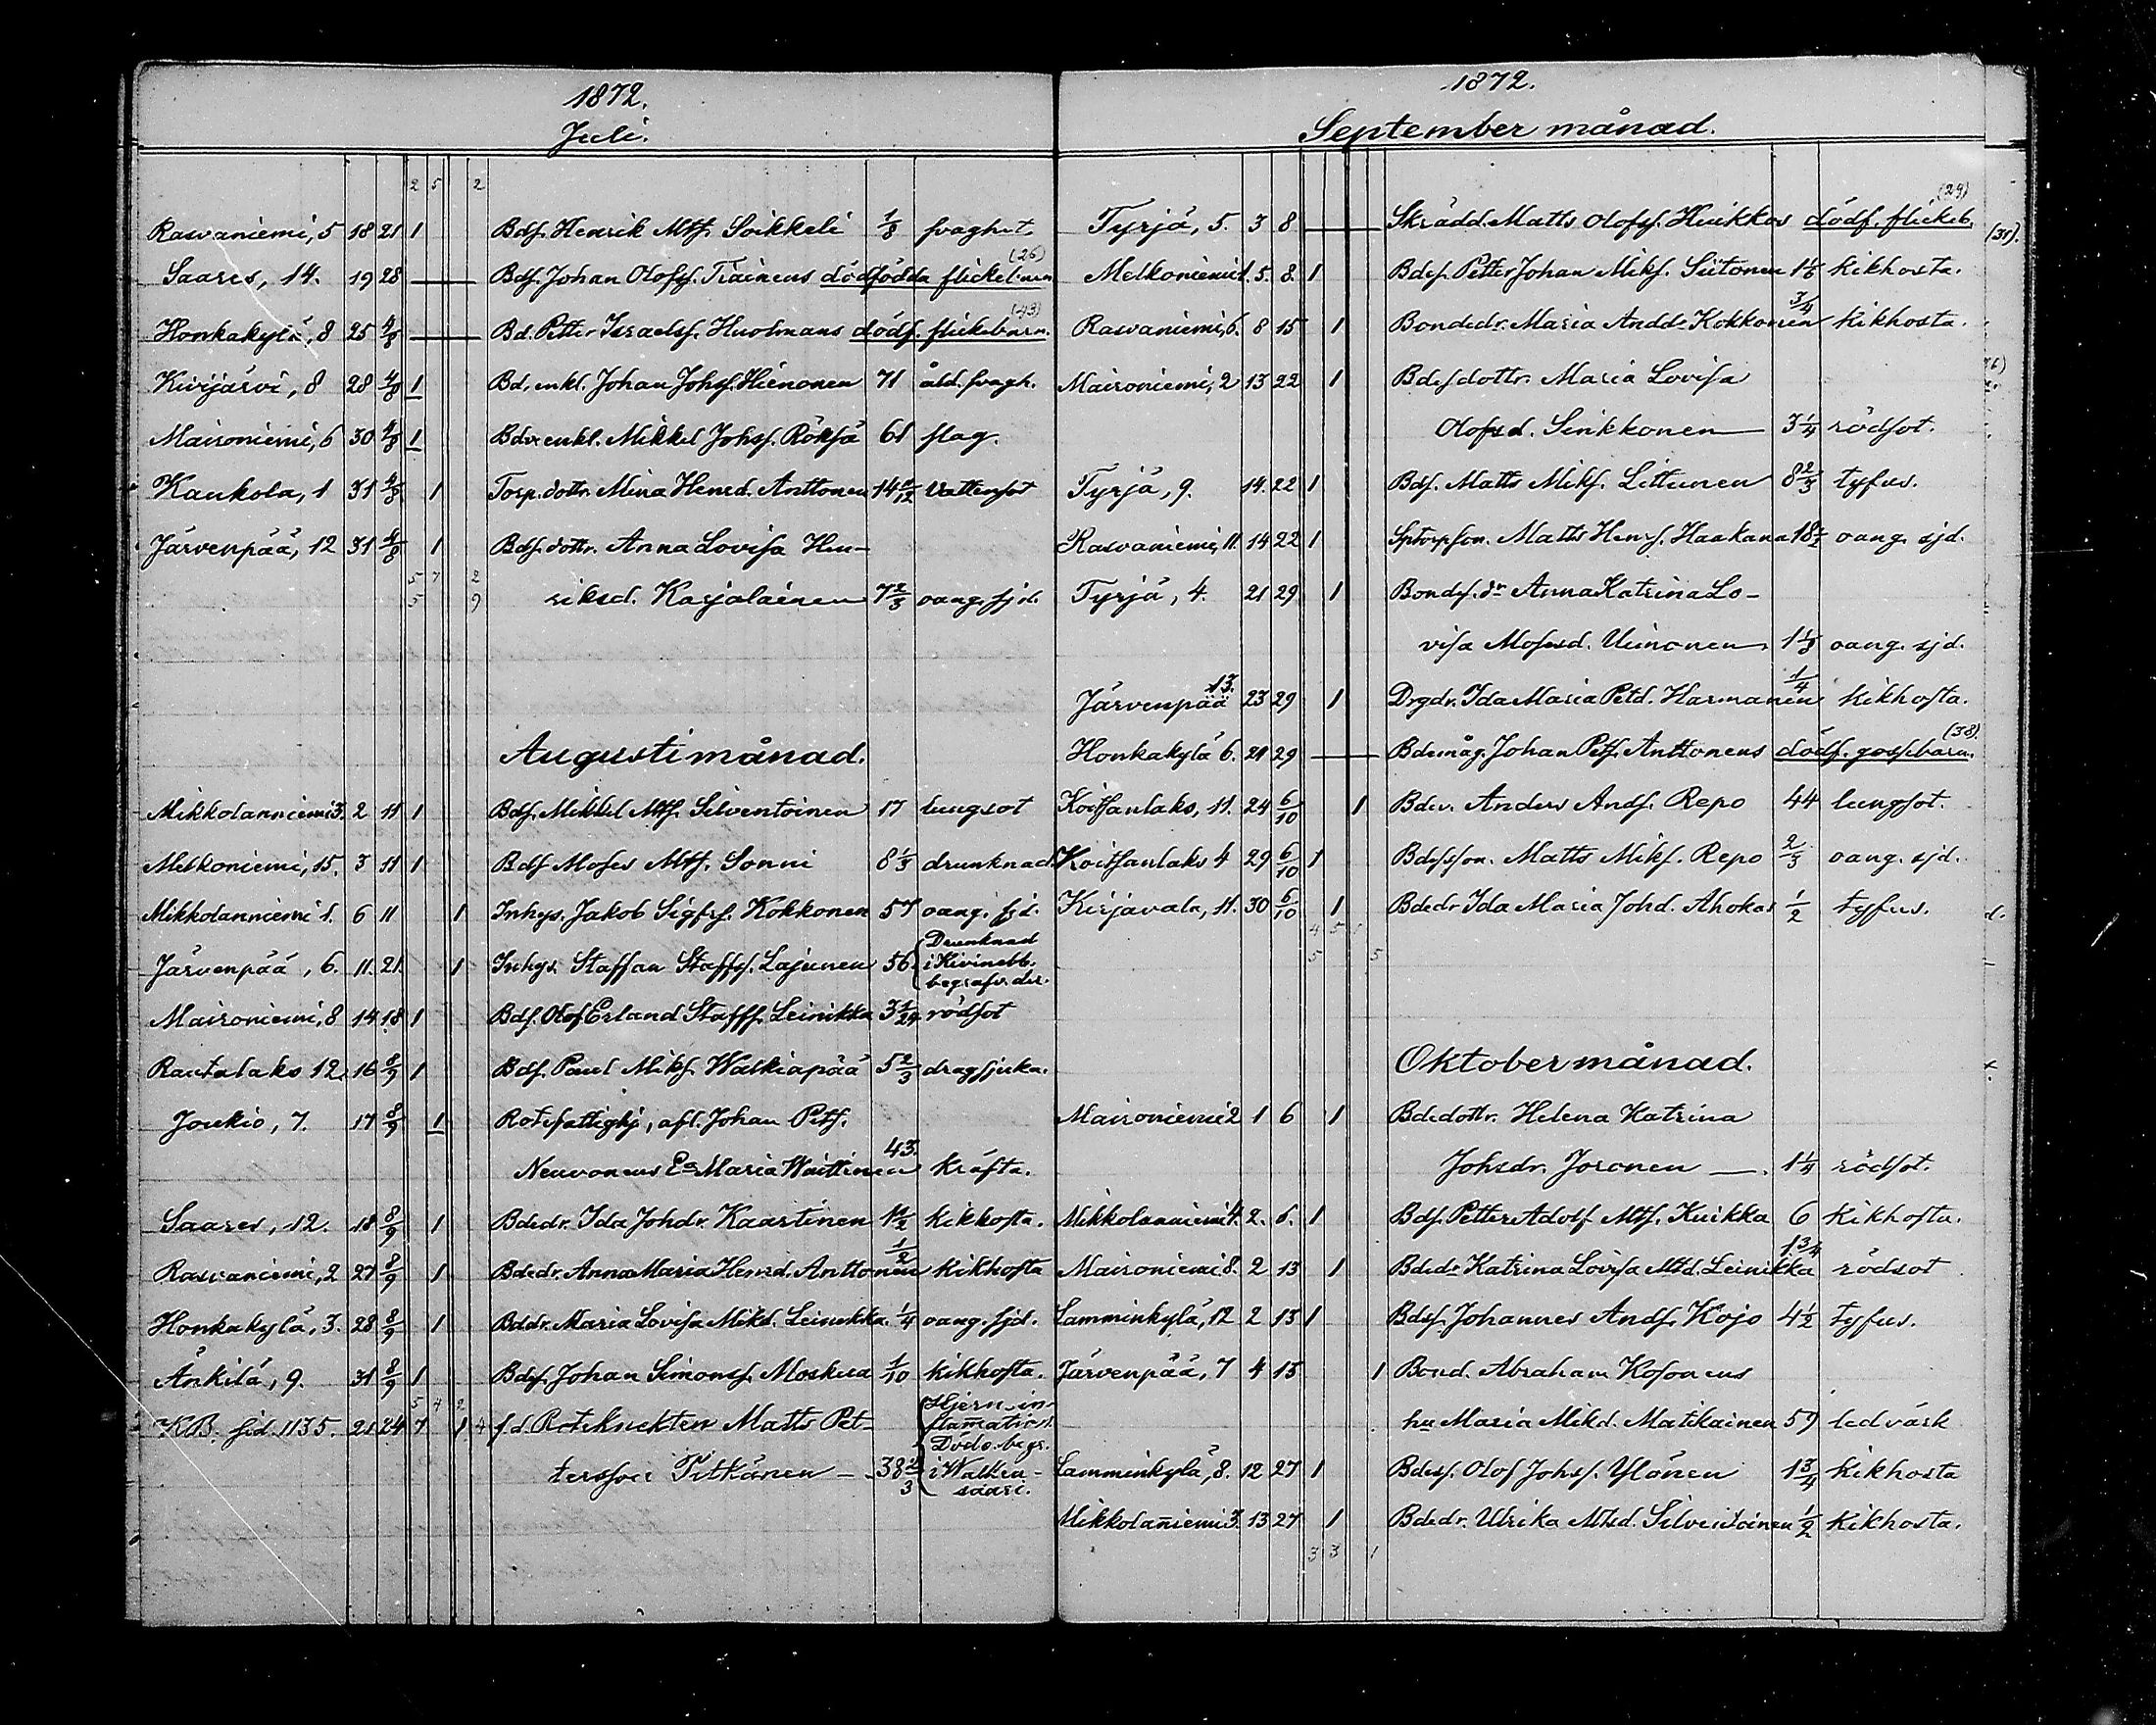 1872.
Juli.
2 5 2
Rasvaniemi, 5 18 21 1 Bdf. Henrik Mtf. Soikkeli 1/8 svaghet.
(26)
Saares, 14. 19 28 Bdf. Johan Olofsf. Tiainens dödfödda flickebarn
(43)
Honkakylä, 8 25 4/8 Bd. Petter Israelsf. Huolmans dödf. flickebarn.
Kirjärvi, 8 28 4/8 1 Bd. enkl. Johan Johsf. Hienonen 71 åld. svagh.
Maironiemi, 6 30 4/8 1 Bdr. enkl. Mikkel Johsf. Röksä 61 slag.
Kaukola, 1 31 4/8 1 Torp. dottr. Mina Henrd. Anttonen 14 Vattensot
Järvenpää, 12 31 4/8 1 Bdf. dottr. Anna Lovisa Hen-
5 7 2
riksd. Karjalainen 7 2/3 oang. sjd.
5 9
Augusti månad.
Mikkolanniemi 3. 2 11 1 Bdf. Mikkel Mtf. Silventoinen 17 lungsot
Melkoniemi, 15. 3 11 1 Bdf Moses Mtf. Sonni 8 1/3 drunknad
Mikkolanniemi 1. 6 11 1 Inhys. Jakob Sigfrf. Kokkonen 57 oang. sjd.
Järvenpää, 6. 11. 21. 1 Inhys. Staffan Staffsf. Lajunen 56. Drunknad
i Kivinebb.
begrafv. der.
Maironiemi, 8 14 18 1 Bdf. Olof Erland Staffsf. Leinikka 3 1/24 rödsot
Rautalaks 12. 16 8/9 1 Bdf. Paul Mikf. Walkiapää 5 2/3 dragsjuka.
Joukio, 7. 17 8/9 1 Rotefattighj, afl. Johan Petf.
Neuvonens Ea Maria Waittinen 43. kräfta.
Saares, 12. 18 8/9 1 Bdedr. Ida Johdr. Kaartinen 1/2 kikhosta.
Rasvaniemi, 2 27 8/9 1 Bdedr. Anna Maria Henrd. Anttonen 1/2 kikhosta
Honkakylä, 3. 28 8/9 1 Bddr. Maria Lovisa Mikd. Leinikka 1/4 oang. sjd.
Änkilä, 9. 31 8/9 1 Bdf. Johan Simonsf. Moskua 1/10 kikhosta.
5 4 2
KB. sid. 1135. 21 24 7 1 4 f.d. Roteknekten Matts Pet-
tersson Pitkänen 38 2/3 Hjern-in-
flamation.
Död o. begr.
i Walkia-
saari.
1872.
September månad.
(29)
Tyrjä, 5. 3 8 Skrädd. Matts Olofsf. Huikkos dödf. flickeb.
Melkoniemi 1. 5. 8. 1 Bdef. Petter Johan Mikf. Siitonen 1 1/6 kikhosta.
Rasvaniemi, 6. 8 15 1 Bondedr. Maria Andd. Kokkonen 3/4 kikhosta.
Maironiemi, 2 13 22 1 Bdefdottr. Maria Lovisa
Olofsd. Sinkkonen 3 1/4 rödsot.
Tyrjä, 9. 14. 22 1 Bdf. Matts Mikf. Littunen 8 2/3 tyfus.
Rasvaniemi, 11. 14 22 1 Sptorpson. Matts Henrf. Haakana 18 1/2 oang. sjd.
Tyrjä, 4. 21 29 1 Bondf. dr Anna Katrina Lo-
visa Mosesd. Uimonen 1 1/3 oang. sjd.
Järvenpää 13. 23 29 1 Drgdr. Ida Maria Petd. Harmanen 1/4 kikhosta.
(38)
Honkakylä 6. 21 29 Bdemåg. Johan Petf. Anttonens dödf. gossebarn.
Koitsanlaks, 11. 24 6/10 1 Bdev. Anders Andf. Repo 44 lungsot.
Koitsanlaks 4 29 6/10 1 Bdefson. Matts Mikf. Repo 2/3 oang. sjd.
Kirjavala, 11. 30 6/10 1 Bdedr Ida Maria Johd. Ahokas 1/2 tyfus.
4 5 1
5 5
Oktober månad.
Maironiemi 2 1 6 1 Bdedottr. Helena Katrina
Johsdr. Joronen 1 1/4 rödsot.
Mikkolanniemi 4. 2. 6. 1 Bdf. Petter Adolf Mtf. Kuikka 6 kikhosta.
Maironiemi 8. 2 13 1 Bdedr Katrina Lovisa Mtd. Leinikka 1 3/4 rödsot
Lamminkylä, 12 2 13 1 Bdsf. Johannes Andf. Kojo 4 1/2 tyfus.
Järvenpää, 7 4 13 1 Bond. Abraham Kosonens
hu Maria Mikd. Matikainen 59 ledvärk
Lamminkylä, 8. 12 27 1 Bdesf. Olof Johsf. Ylönen 1 3/4 kikhosta
Mikkolaniemi 3. 13 27 1 Bdedr. Ulrika Mtsd. Silventoinen 1/2 kikhosta.
3 3 1